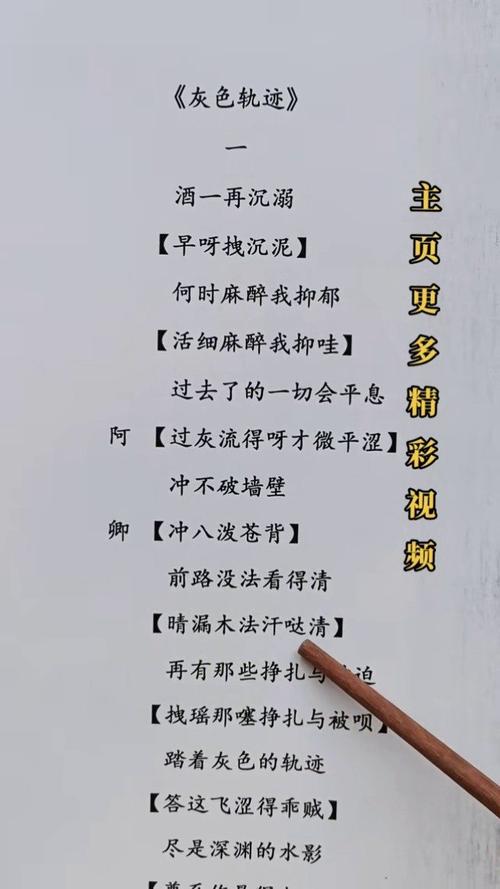 《灰色轨迹》
一
酒一再沉溺
【早呀拽沉泥】
何时麻醉我抑郁
【活细麻醉我抑哇】
过去了的一切会平息
阿【过灰流得呀才微平涩】
冲不破墙壁
卿【冲八泼苍背】
前路没法看得清
【晴漏木法汗哒清】
再有那些挣扎与 迫
【拽瑶那噻挣扎与被呗】
踏着灰色的轨迹
【答这飞涩得乖贼】
尽是深渊的水影
主页更多精彩视频